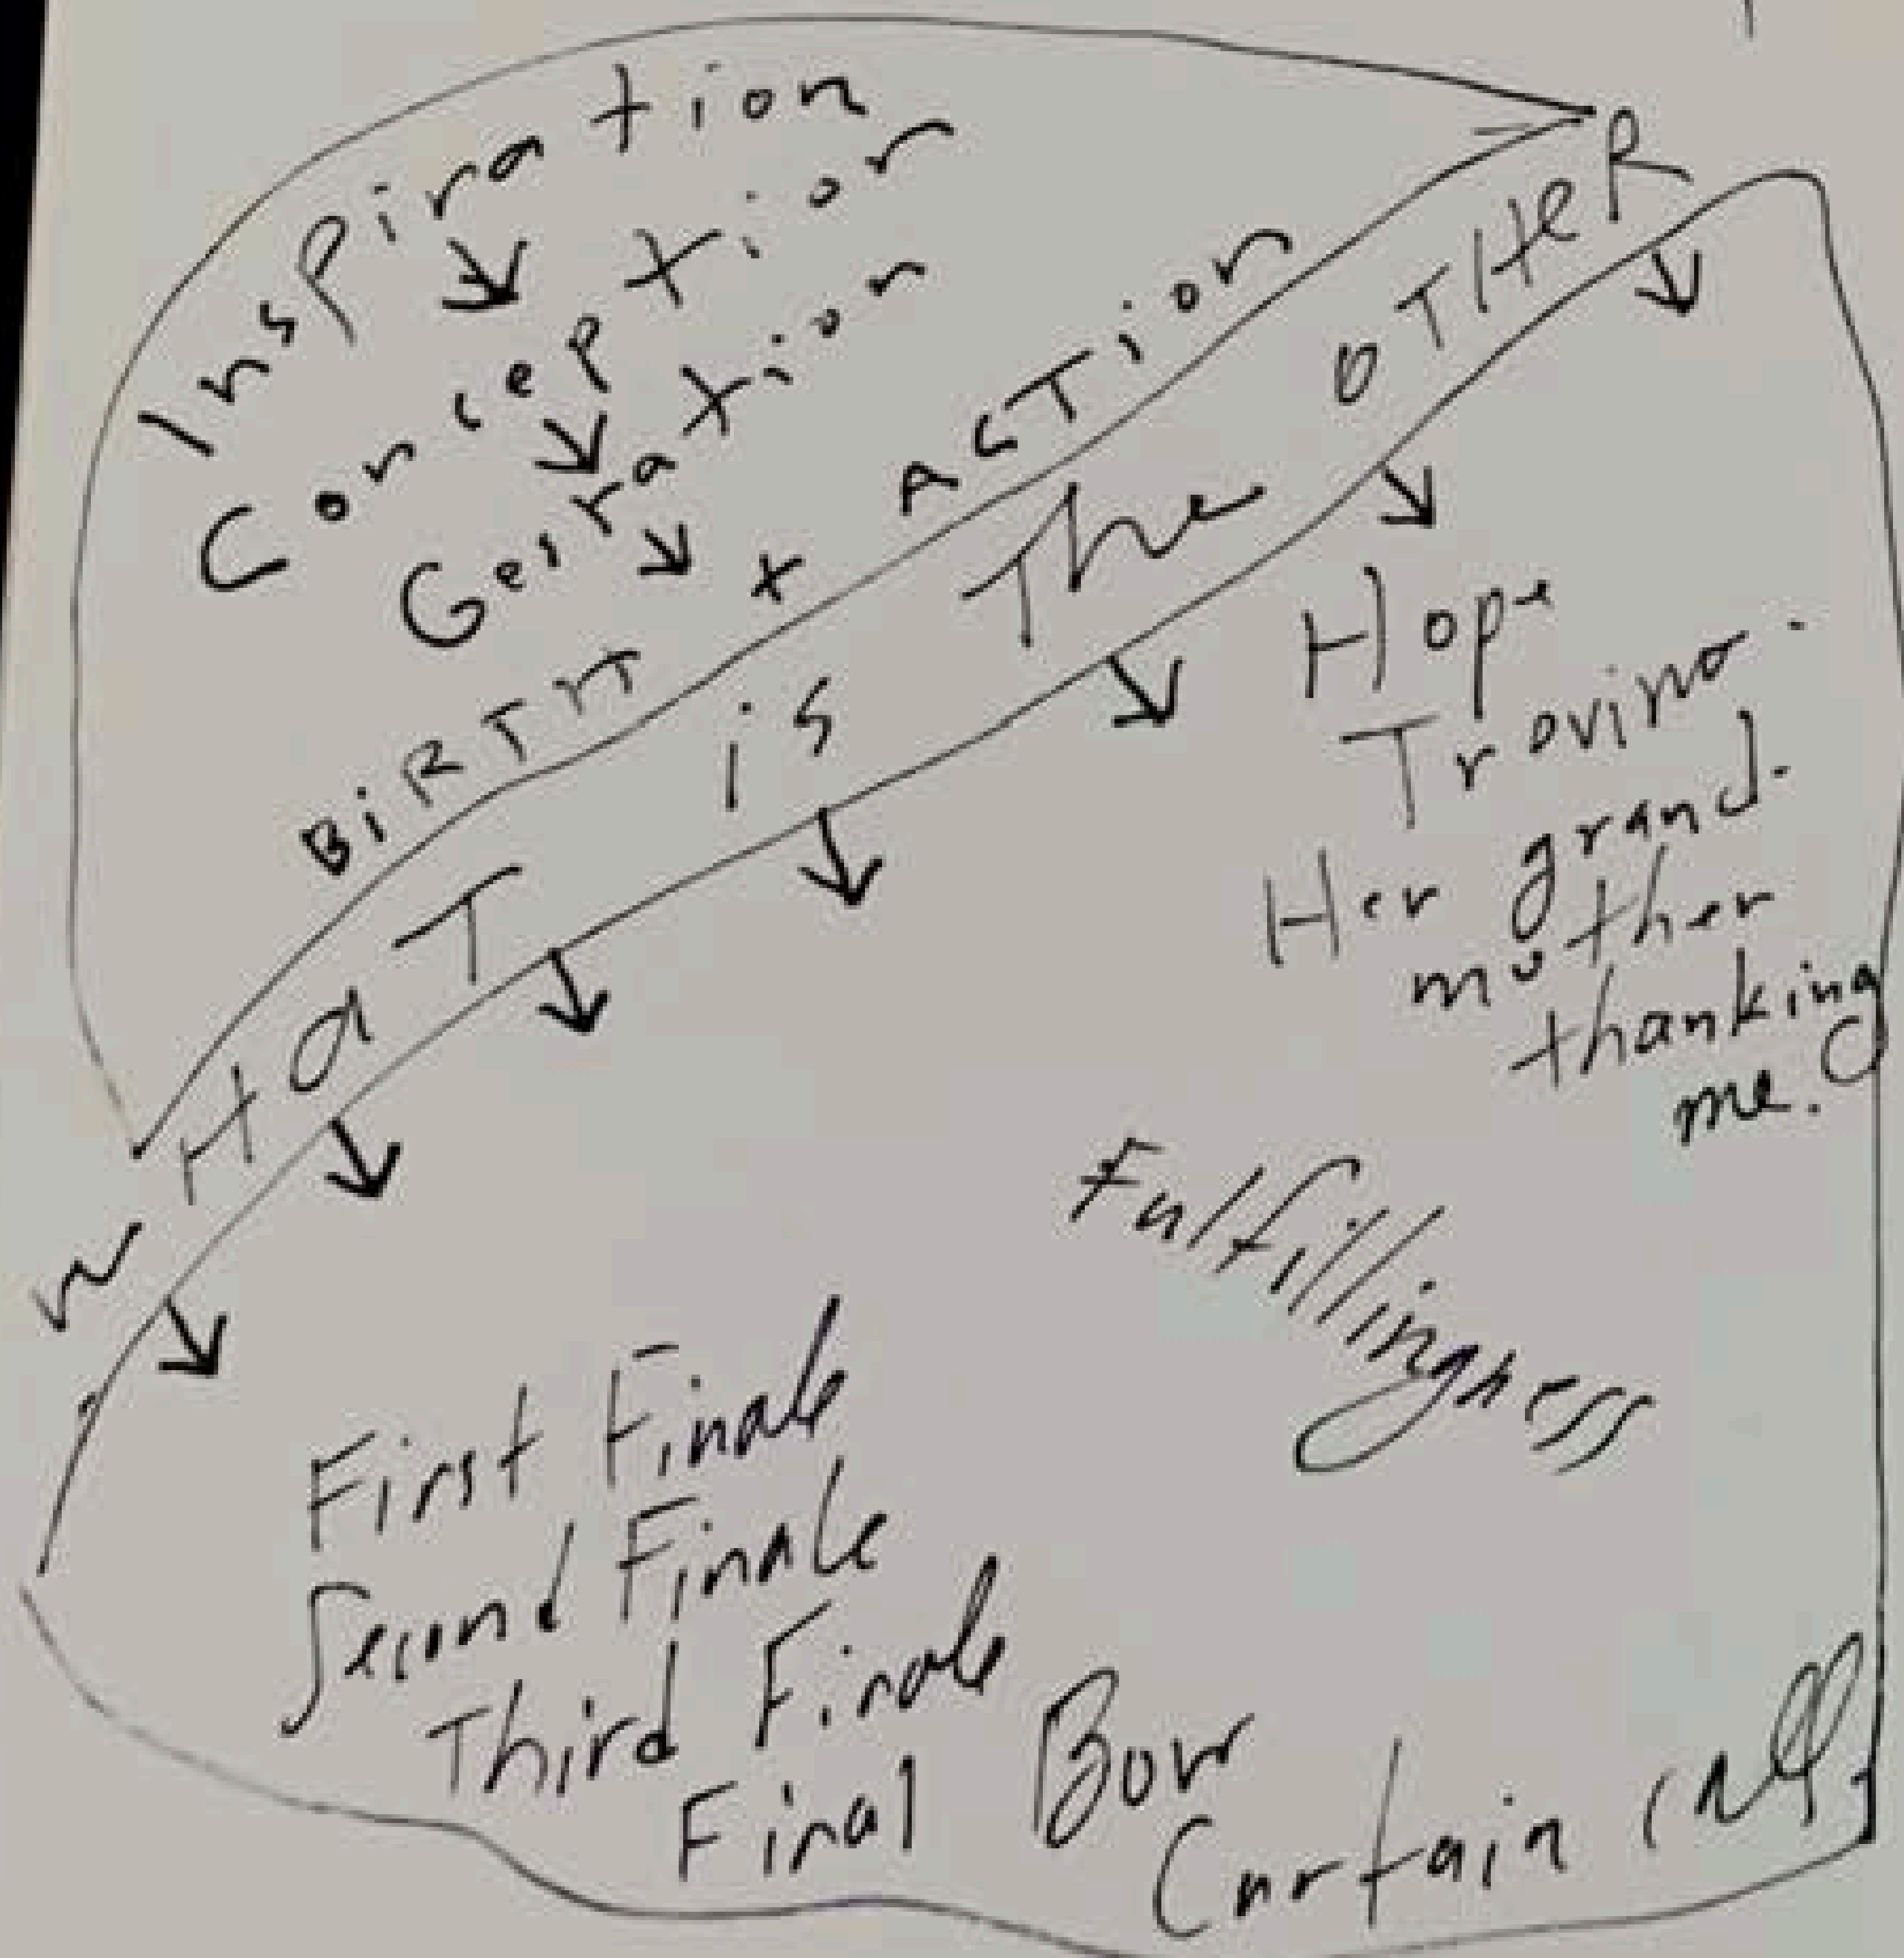 Inspiration
Conception
BiRTH + ACTion
WHaT is The OTHeR
Hope
Her grand-
mother
thanking
me.
Fulfillingness
First Finale
Second Finale
Third Finale
Final Bow
Curtain Call